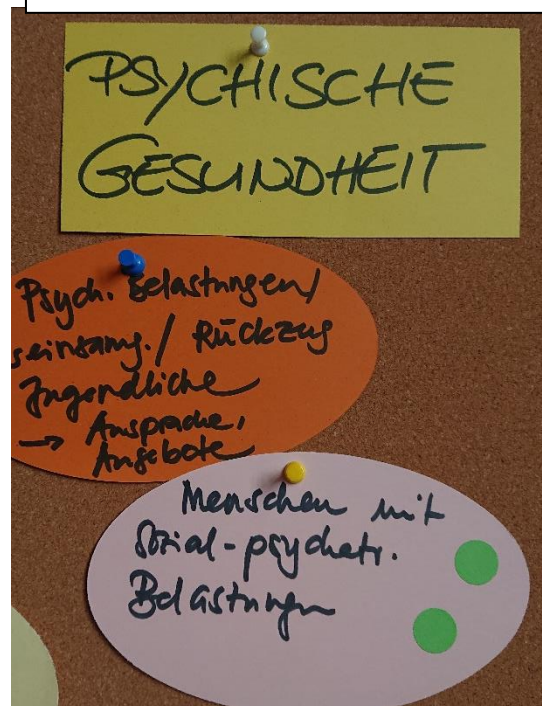 PSYCHISCHE
GESUNDHEIT
Psych. Belastungen/
seinsamg./ Rückzug
Jugendliche
→ Ansprache,
Angebote
Menschen mit
Sozial-psychatr.
Belastungen